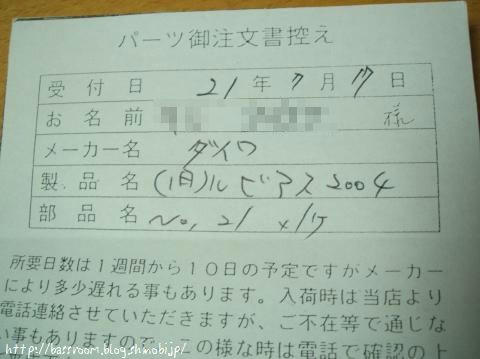 パーツ御注文書控え
受付日 21年7月17日
お名前 様
メーカー名 ダイワ
製品名 (旧)ルビアス2004
部品名 No, 21 x1ケ
所要日数は1週間から10日の予定ですがメーカー
により多少遅れる事もあります。入荷時は当店より
電話連絡させていただきますが、ご不在等で通じな
い事もありますので の様な時は電話で確認の上
http://bassroom.blog.shinobi.jp/